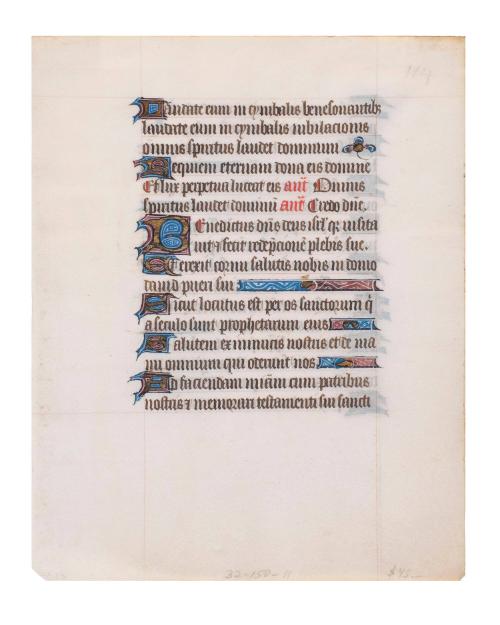 114
Laudate eum in cymbalis benesonantib;
laudate eum in cymbalis iubilacionis
omnis spiritus laudet dominum
Requiem eternam dona eis domine
Et lux perpetua luceat eis añt Omnis
spiritus laudet dominum añt Credo dñe.
Benedictus dñs deus isrl' qr uisita
uit ⁊ fecit redẽpcionẽ plebis sue.
Et erexit cornu salutis nobis in domo
dauid pueri sui
Sicut locutus est per os sanctorum q̇
a seculo sunt prophetarum eius
Salutem ex inimicis nostris et de ma
nu omnium qui oderunt nos
Ad faciendam miãm cum patribus
nostris ⁊ memorari testamenti sui sancti
32-150-11
$45-